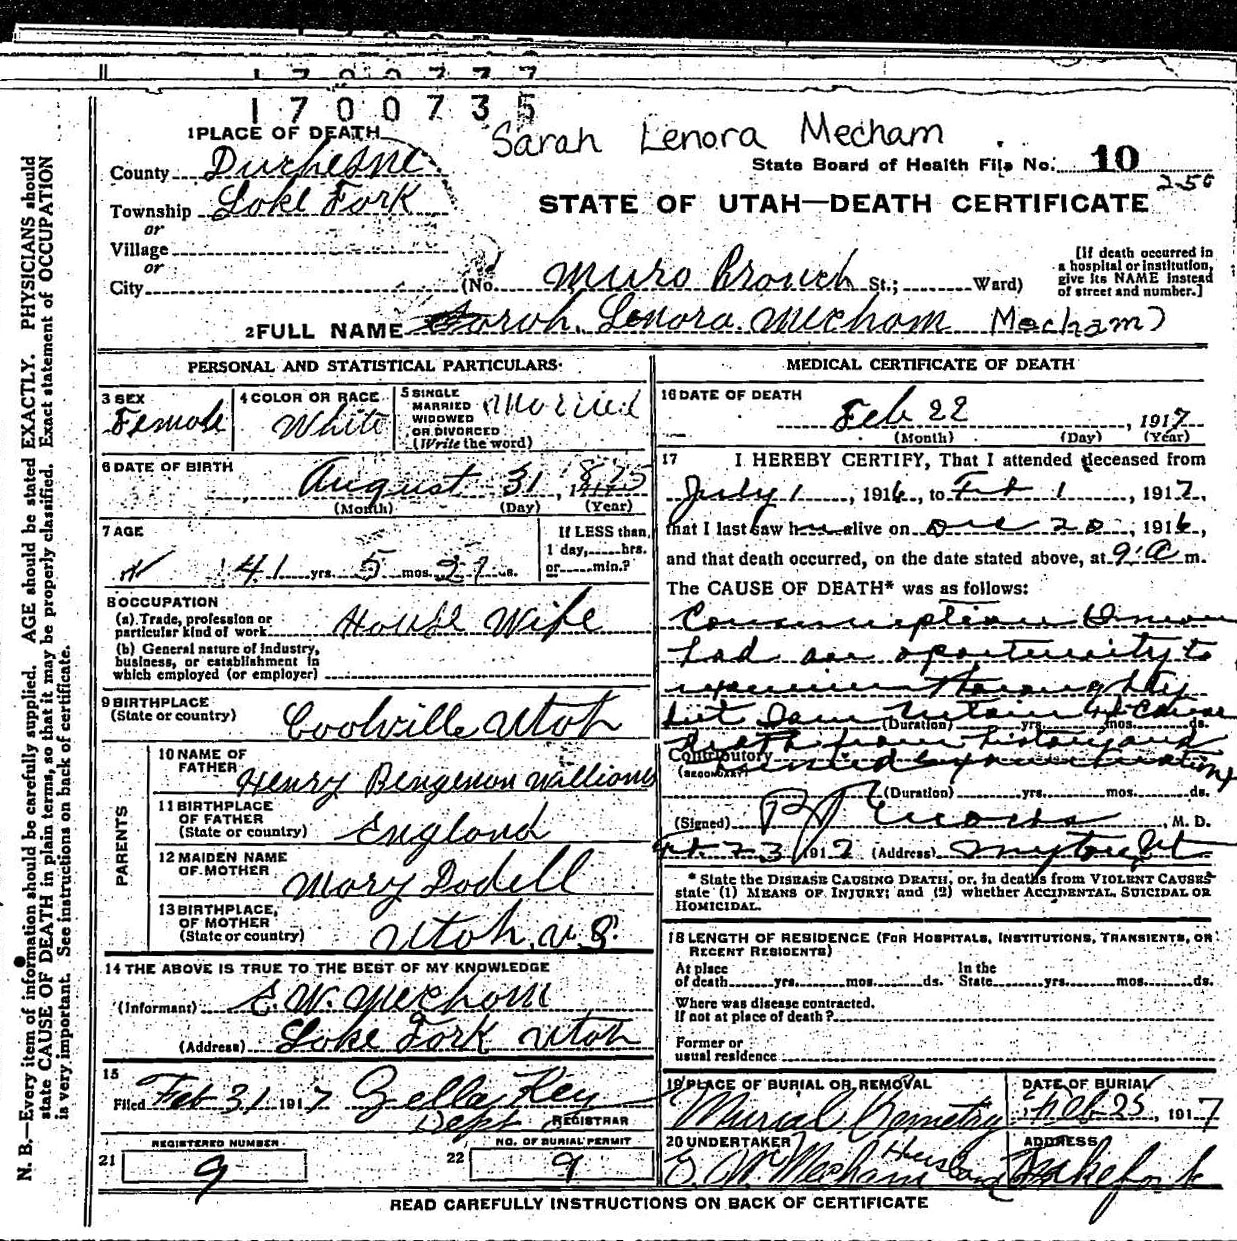 1700735
Sarah Lenora Mecham
1 PLACE OF DEATH
State Board of Health File No. 10
County Duchesne
2-50
Township Lake Fork
STATE OF UTAH—DEATH CERTIFICATE
or
Village
or
City (No. St.; Ward)
[If death occurred in
a hospital or institution,
give its NAME instead
of street and number.]
2 FULL NAME Sarah Lenora Mecham Mecham)
PERSONAL AND STATISTICAL PARTICULARS
3 SEX
Female
4 COLOR OR RACE
White
5 SINGLE
MARRIED
WIDOWED
OR DIVORCED
(Write the word)
Married
6 DATE OF BIRTH
August 31, 1875
(Month) (Day) (Year)
7 AGE
41 yrs. 5 mos. ds.
If LESS than
1 day, hrs.
or min.?
8 OCCUPATION
(a) Trade, profession or
particular kind of work House Wife
(b) General nature of industry,
business, or establishment in
which employed (or employer)
9 BIRTHPLACE
(State or country) Coolville Utah
PARENTS
10 NAME OF
FATHER Henry
11 BIRTHPLACE
OF FATHER
(State or country) England
12 MAIDEN NAME
OF MOTHER Mary Dodell
13 BIRTHPLACE
OF MOTHER
(State or country) Utah U S
14 THE ABOVE IS TRUE TO THE BEST OF MY KNOWLEDGE
(Informant) E. W. Mecham
(Address) Lake Fork Utah
15
Filed Feb 31 1917 Zella Key
Dept REGISTRAR
REGISTERED NUMBER
21 9
NO. OF BURIAL PERMIT
22 9
MEDICAL CERTIFICATE OF DEATH
16 DATE OF DEATH
Feb 22, 1917
(Month) (Day) (Year)
17 I HEREBY CERTIFY, That I attended deceased from
July 1, 1916, to Feb 1, 1917,
that I last saw her alive on Dec 20, 1916,
and that death occurred, on the date stated above, at 9 a m.
The CAUSE OF DEATH* was as follows:
Consumption
had an oportunity to
thoroughly
but
(Duration) yrs. mos. ds.
death from history and
Contributory
(SECONDARY)
(Duration) yrs. mos. ds.
(Signed) , M. D.
Feb. 23 1917 (Address)
* State the DISEASE CAUSING DEATH, or, in deaths from VIOLENT CAUSES
state (1) MEANS OF INJURY; and (2) whether ACCIDENTAL, SUICIDAL OR
HOMICIDAL.
18 LENGTH OF RESIDENCE (FOR HOSPITALS, INSTITUTIONS, TRANSIENTS, OR
RECENT RESIDENTS)
At place
of death yrs. mos. ds.
In the
State yrs. mos. ds.
Where was disease contracted.
If not at place of death?
Former or
usual residence
19 PLACE OF BURIAL OR REMOVAL
DATE OF BURIAL
Feb 25, 1917
20 UNDERTAKER
ADDRESS
E. W. Mecham Husband Lake fork
READ CAREFULLY INSTRUCTIONS ON BACK OF CERTIFICATE
N. B.—Every item of information should be carefully supplied. AGE should be stated EXACTLY. PHYSICIANS should
state CAUSE OF DEATH in plain terms, so that it may be properly classified. Exact statement of OCCUPATION
is very important. See instructions on back of certificate.